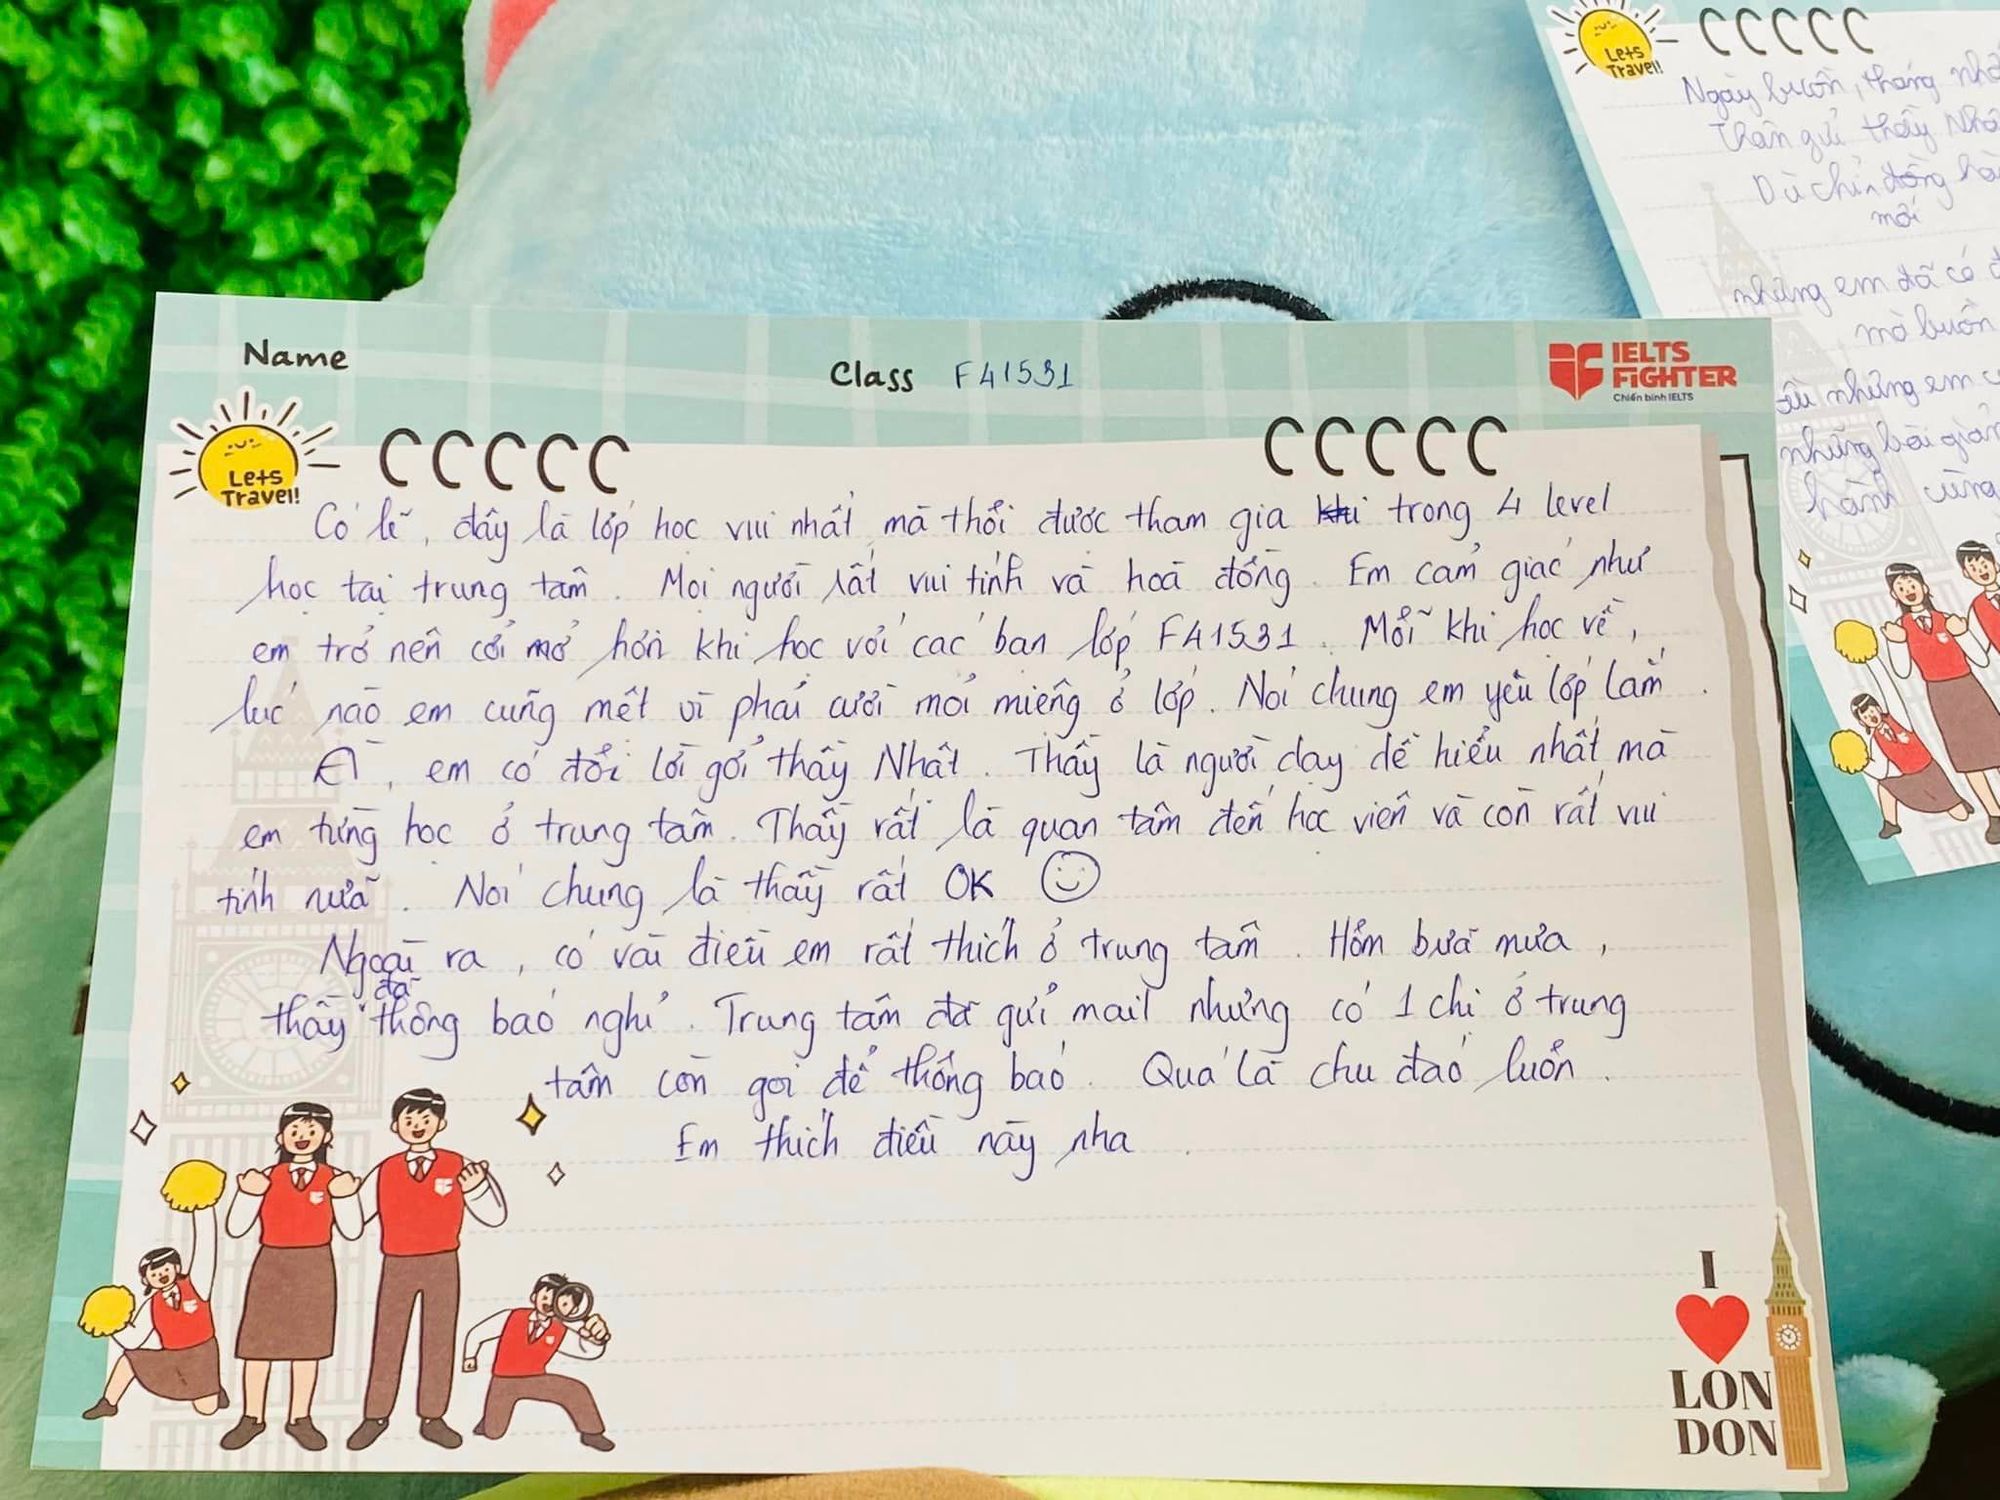 Name
Class F41531
IELTS
FIGHTER
Chiến binh IELTS
Lets
Travel!
Có lẽ, đây là lớp học vui nhất mà thôi được tham gia khi trong 4 level
học tại trung tâm. Mọi người rất vui tính và hoà đồng. Em cảm giác như
em trở nên cởi mở hơn khi học với các bạn lớp F41531. Mỗi khi học về,
lúc nào em cũng mệt vì phải cười mỏi miệng ở lớp. Nói chung em yêu lớp lắm.
À, em có đôi lời gởi thầy Nhật. Thầy là người dạy dễ hiểu nhất mà
em từng học ở trung tâm. Thầy rất là quan tâm đến học viên và còn rất vui
tính nữa. Nói chung là thầy rất OK
Ngoài ra, có vài điều em rất thích ở trung tâm. Hôm bữa mưa,
thầy đã thông báo nghỉ. Trung tâm đã gửi mail nhưng có 1 chị ở trung
tâm còn gọi để thông báo. Quá là chu đáo luôn.
Em thích điều này nha.
I
LON
DON
Lets
Travel!
Ngày buồn, tháng
Thân gửi thầy
Dù chỉ đồng
mới
những em đã có
mà buồn
những em
những bài giảng
hành cùng